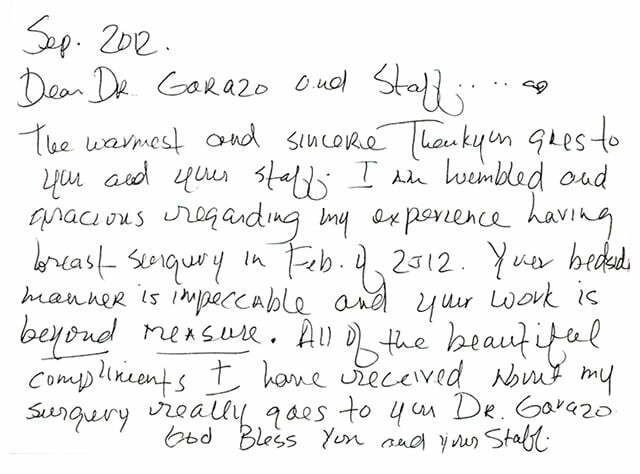 Sep. 2012.
Dear Dr. Garazo and Staff.....
The warmest and sincere Thankyou goes to
you and your staff. I am humbled and
gracious regarding my experience having
breast surgury in Feb. of 2012. Your bedside
manner is impeccable and your work is
beyond measure. All of the beautiful
compliments I have received about my
surgury really goes to you Dr. Garazo.
God Bless You and your Staff.